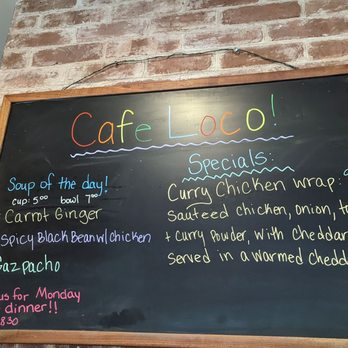 Cafe Loco!
Soup of the day!
cup: 5.00 bowl 7.00
Carrot Ginger
Spicy Black Bean w/ chicken
Gazpacho
us for Monday
dinner!!
830
Specials:
Curry Chicken wrap:
Sauteed chicken, onion,
+ curry powder, with cheddar
served in a warmed chedd